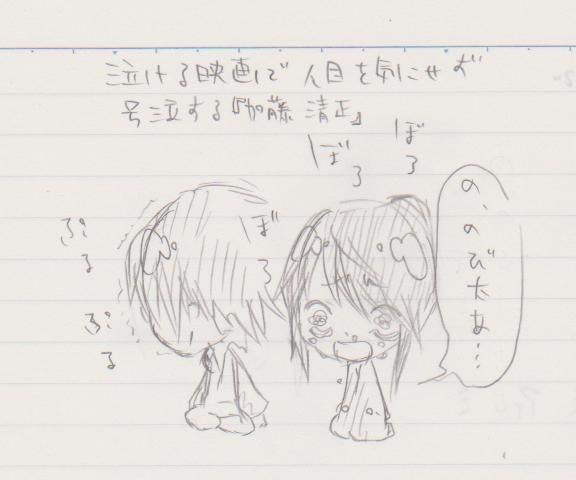 泣ける映画にで人目を気にせず
号泣する『加藤 清正』
ぼろ
ぼろ
ぼろ
の、のび太ぁ…
ぷる
ぷる